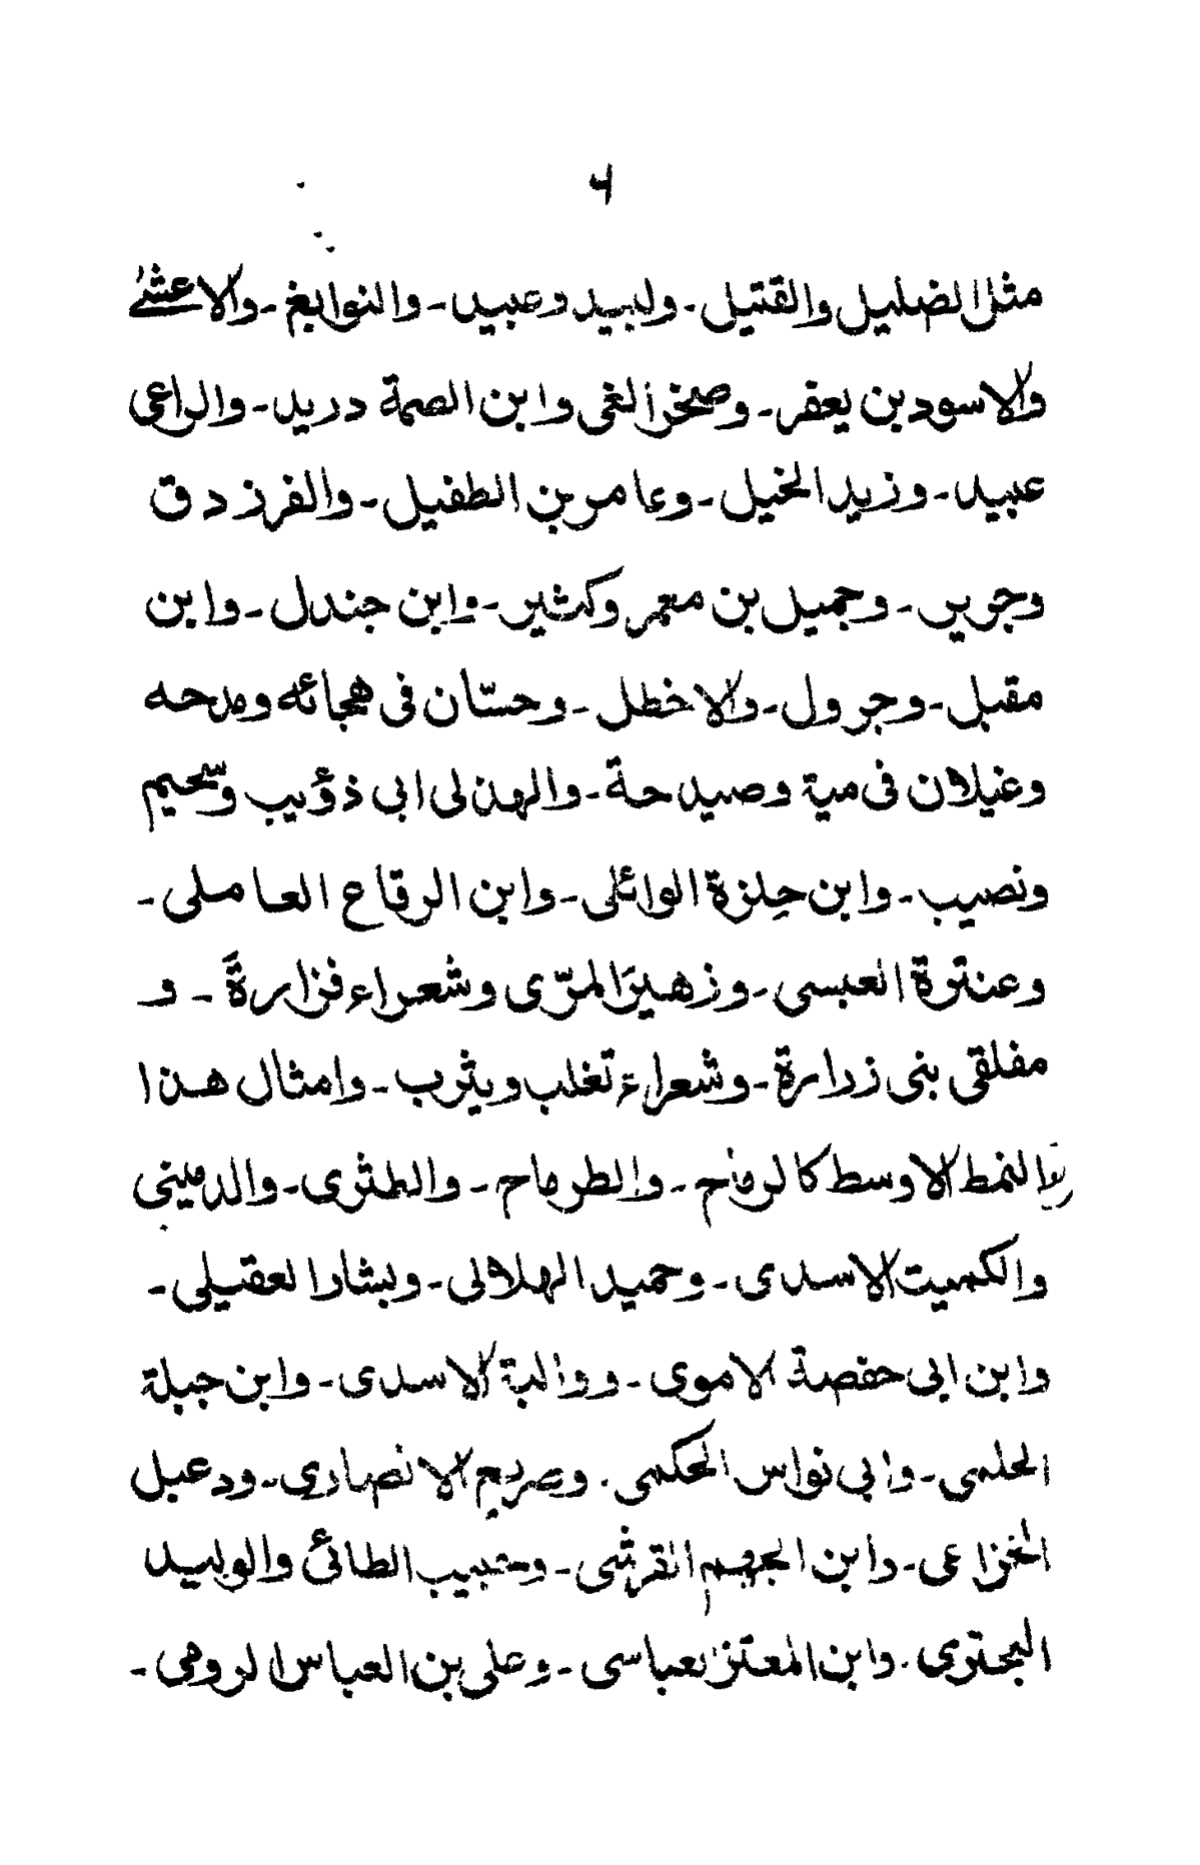 ۶
مثل الضليل والقتيل ـ ولبيد وعبيد ـ والنوابغ ـ والاعشىٰ
والاسود بن يعفر ـ وصخر الغى وابن الصمة دريد ـ والراعى
عبيد ـ وزيد الخيل ـ وعامر بن الطفيل ـ والفرزدق
وجرير ـ وجميل بن معمر وكثير ـ وابن جندل ـ وابن
مقبل ـ وجرول ـ والاخطل ـ وحسّان فى هجائه ومدحه
وغيلان فى مية وصيدحة ـ والهذلى ابى ذؤيب وسحيم
ونصيب ـ وابن حلزة الوائلى ـ وابن الرقاع العاملى ـ
وعنترة العبسى ـ وزهير المرّى وشعراء فزارةَ ـ و
مفلقى بنى زرارة ـ وشعراء تغلب ويثرب ـ وامثال هذا
النمط الاوسط كالرماح ـ والطرماح ـ والطثرى ـ والدمينى
والكميت الاسدى ـ وحميد الهلالى ـ وبشار العقيلى ـ
وابن ابى حفصة الاموى ـ ووالبة الاسدى ـ وابن جبلة
الحلمى ـ وابى نواس الحكمى . وصريع الانصارى ـ ودعبل
الخزاعى ـ وابن الجهم القرشى ـ وحبيب الطائى والوليد
البحترى . وابن المعتز لعباسى ـ وعلى بن العباس الرومى ـ